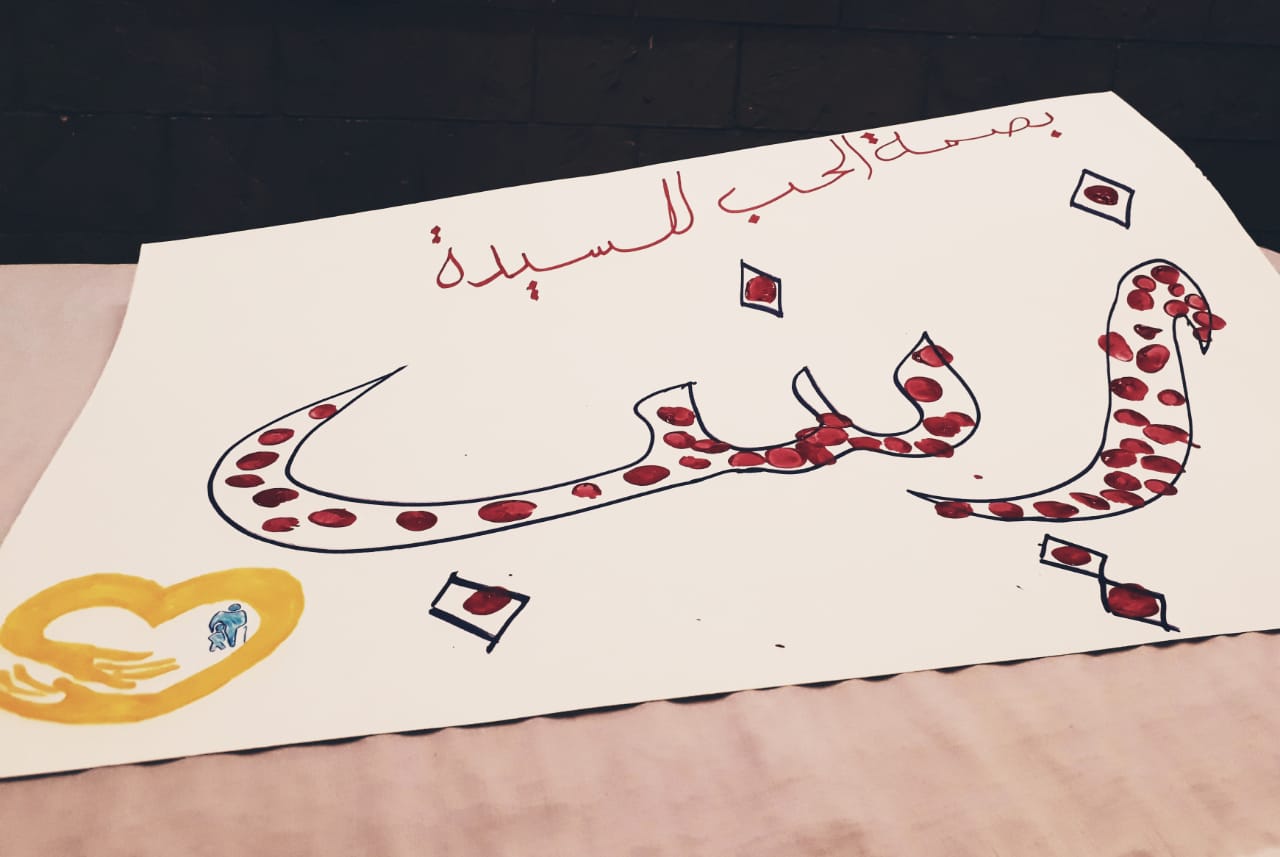 بصمة الحب للسيدة
زينب